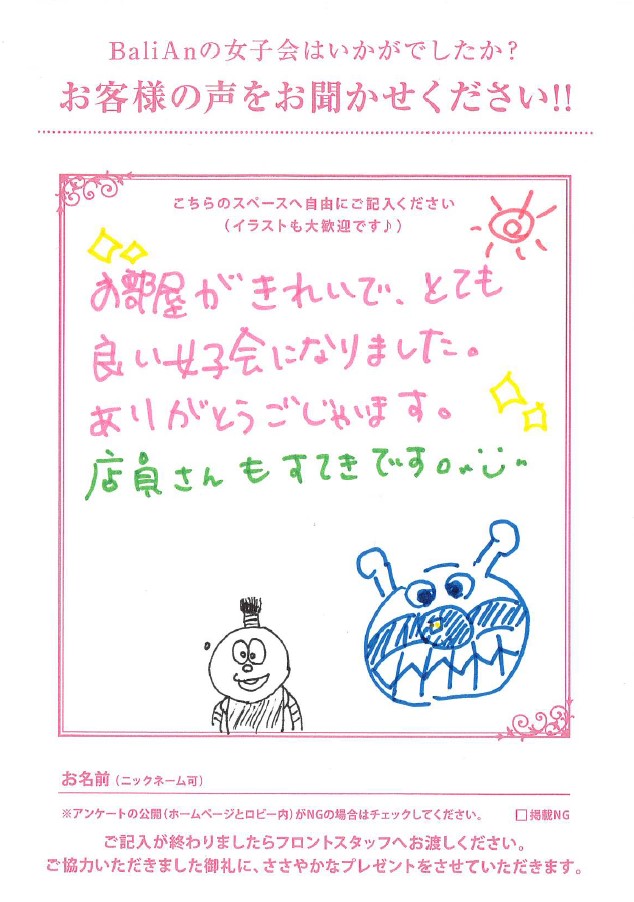 BaliAnの女子会はいかがでしたか?
お客様の声をお聞かせください!!
こちらのスペースへ自由にご記入ください
(イラストも大歓迎です♪)
お部屋がきれいで、とても
良い女子会になりました。
ありがとうごじゃいます。
店員さんもすてきです。
お名前(ニックネーム可)
※アンケートの公開(ホームページとロビー内)がNGの場合はチェックしてください。 □掲載NG
ご記入が終わりましたらフロントスタッフへお渡しください。
ご協力いただきました御礼に、ささやかなプレゼントをさせていただきます。